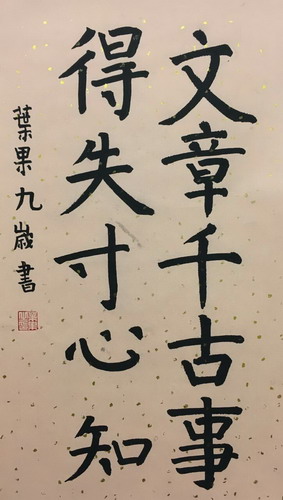 文章千古事
得失寸心知
葉果九歲書